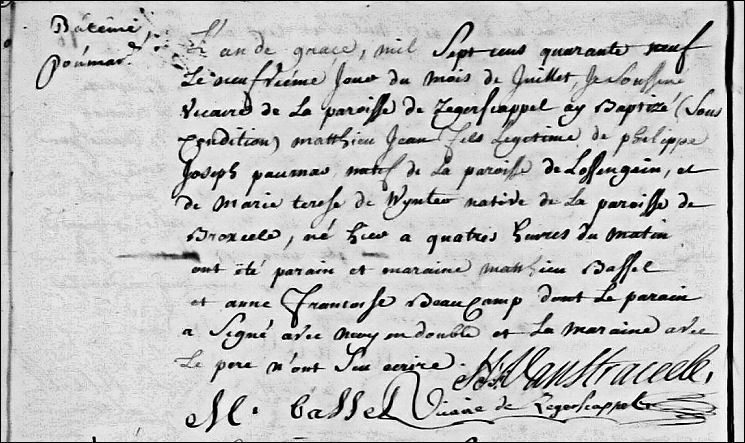 Bâtême
Poúmar.
L'an de grace, mil Sept cens quarante neuf
Le neufvième Jour du mois de Juillet, Je Soussine
vicaire de La paroisse de Zegerscappel ay Baptize (Sous
Condition) matthieu Jean fils Legitime de philippe
Joseph paumar natif de La paroisse de Lossengain, et
de Marie terese de Wynter native de La paroisse de
Broxcele, né hier a quatres heures du matin
ont été parain et maraine matthieu Bassel
et anne francoise Beaucamp dont Le parain
a Signé avec moy en double et La maraine avec
Le pere n'ont Seu ecrire.
VanStraceele.
M. bassel Vicaire de Zegerscappel